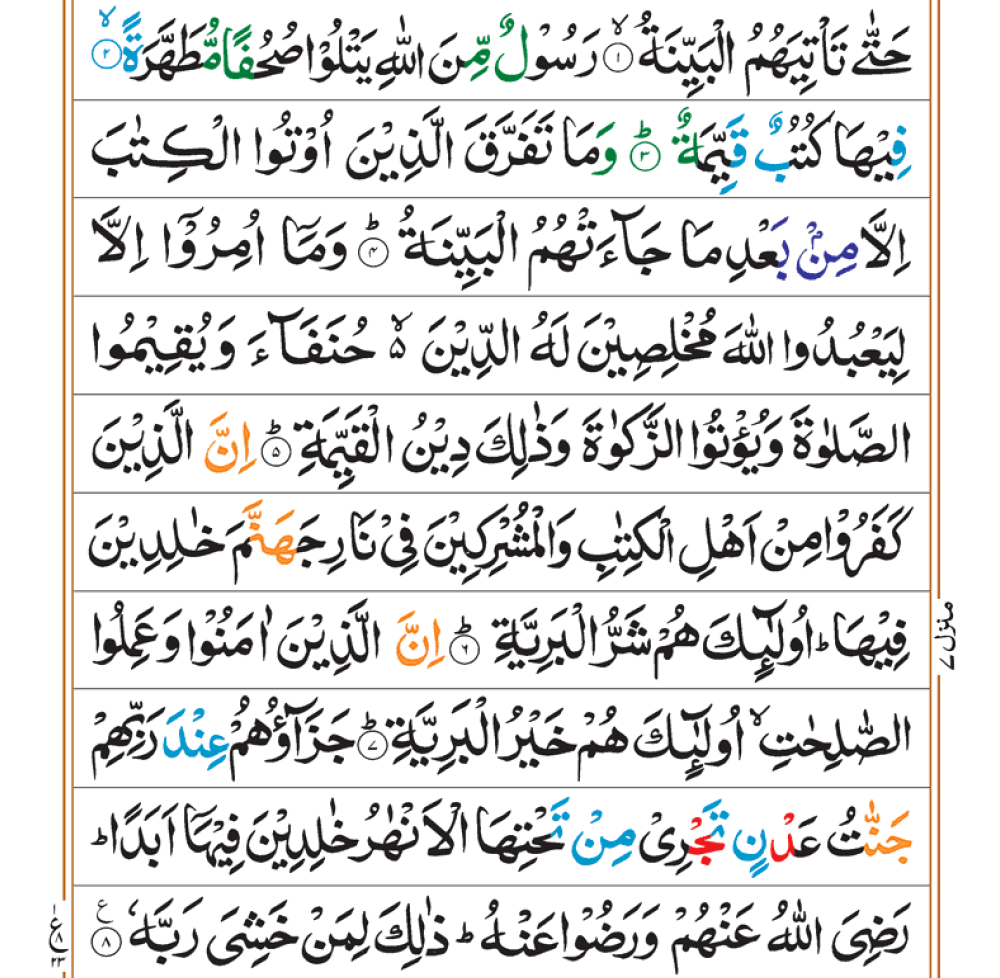 حَتّٰى تَاْتِيَهُمُ الْبَيِّنَةُ ۙ﴿۱﴾ رَسُوْلٌ مِّنَ اللّٰهِ يَتْلُوْا صُحُفًا مُّطَهَّرَةً ۙ﴿۲﴾
فِيْهَا كُتُبٌ قَيِّمَةٌ ؕ﴿۳﴾ وَمَا تَفَرَّقَ الَّذِيْنَ اُوْتُوا الْكِتٰبَ
اِلَّا مِنْۢ بَعْدِ مَا جَآءَتْهُمُ الْبَيِّنَةُ ؕ﴿۴﴾ وَمَاۤ اُمِرُوْۤا اِلَّا
لِيَعْبُدُوا اللّٰهَ مُخْلِصِيْنَ لَهُ الدِّيْنَ ۙ۵ حُنَفَآءَ وَيُقِيْمُوا
الصَّلٰوةَ وَيُؤْتُوا الزَّكٰوةَ وَذٰلِكَ دِيْنُ الْقَيِّمَةِ ؕ﴿۵﴾ اِنَّ الَّذِيْنَ
كَفَرُوْا مِنْ اَهْلِ الْكِتٰبِ وَالْمُشْرِكِيْنَ فِيْ نَارِ جَهَنَّمَ خٰلِدِيْنَ
فِيْهَا ؕ اُولٰٓئِكَ هُمْ شَرُّ الْبَرِيَّةِ ؕ﴿۶﴾ اِنَّ الَّذِيْنَ اٰمَنُوْا وَعَمِلُوا
الصّٰلِحٰتِ ۙ اُولٰٓئِكَ هُمْ خَيْرُ الْبَرِيَّةِ ؕ﴿۷﴾ جَزَآؤُهُمْ عِنْدَ رَبِّهِمْ
جَنّٰتُ عَدْنٍ تَجْرِيْ مِنْ تَحْتِهَا الْاَنْهٰرُ خٰلِدِيْنَ فِيْهَاۤ اَبَدًا ؕ
رَضِيَ اللّٰهُ عَنْهُمْ وَرَضُوْا عَنْهُ ؕ ذٰلِكَ لِمَنْ خَشِيَ رَبَّهٗ ﴿۸﴾ ع
منزل ۷
۱
ع ۸
۲۳